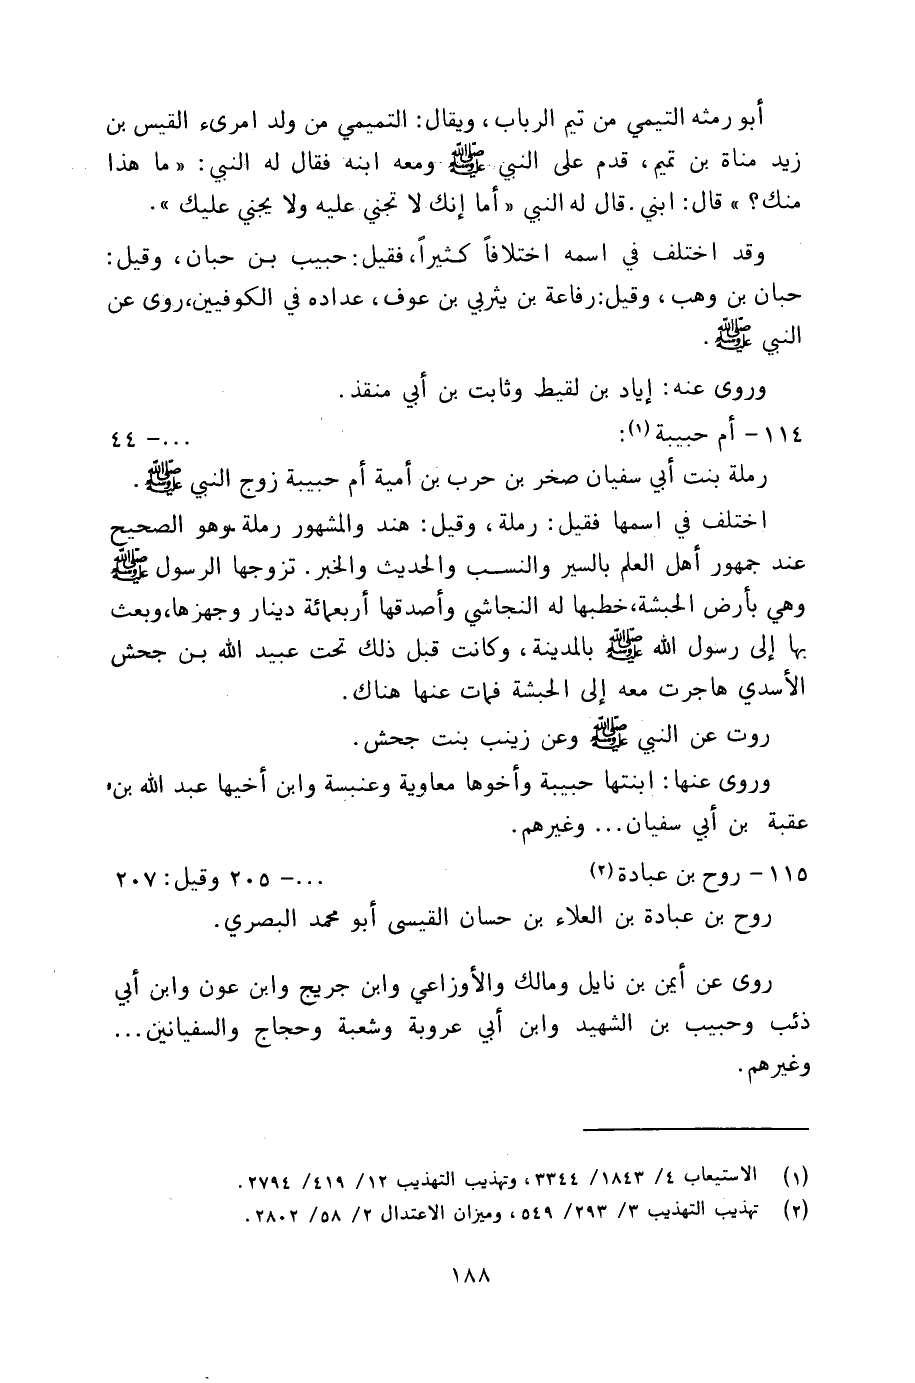 أبو رمثه التيمي من تيم الرباب، ويقال: التميمي من ولد امرىء القيس بن
زيد مناة بن تميم، قدم على النبي ﷺ ومعه ابنه فقال له النبي: « ما هذا
منك؟ » قال: ابني. قال له النبي « أما إنك لا تجني عليه ولا يجني عليك ».
وقد اختلف في اسمه اختلافاً كثيراً، فقيل: حبيب بن حبان، وقيل:
حبان بن وهب، وقيل: رفاعة بن يثربي بن عوف، عداده في الكوفيين، روى عن
النبي ﷺ.
وروى عنه: إياد بن لقيط وثابت بن أبي منقذ.
١١٤ – أم حبيبة (١): ...– ٤٤
رملة بنت أبي سفيان صخر بن حرب بن أمية أم حبيبة زوج النبي ﷺ.
اختلف في اسمها فقيل: رملة، وقيل: هند والمشهور رملة وهو الصحيح
عند جمهور أهل العلم بالسير والنسب والحديث والخبر. تزوجها الرسول ﷺ
وهي بأرض الحبشة، خطبها له النجاشي وأصدقها أربعمائة دينار وجهزها، وبعث
بها إلى رسول الله ﷺ بالمدينة، وكانت قبل ذلك تحت عبيد الله بن جحش
الأسدي هاجرت معه إلى الحبشة فمات عنها هناك.
روت عن النبي ﷺ وعن زينب بنت جحش.
وروى عنها: ابنتها حبيبة وأخوها معاوية وعنبسة وابن أخيها عبد الله بن
عقبة بن أبي سفيان... وغيرهم.
١١٥ – روح بن عبادة (٢) ...– ٢٠٥ وقيل: ٢٠٧
روح بن عبادة بن العلاء بن حسان القيسى أبو محمد البصري.
روى عن أيمن بن نايل ومالك والأوزاعي وابن جريج وابن عون وابن أبي
ذئب وحبيب بن الشهيد وابن أبي عروبة وشعبة وحجاج والسفيانين...
وغيرهم.
(١) الاستيعاب ٤/ ١٨٤٣/ ٣٣٤٤، وتهذيب التهذيب ١٢/ ٤١٩/ ٢٧٩٤.
(٢) تهذيب التهذيب ٣/ ٢٩٣/ ٥٤٩، وميزان الاعتدال ٢/ ٥٨/ ٢٨٠٢.
١٨٨